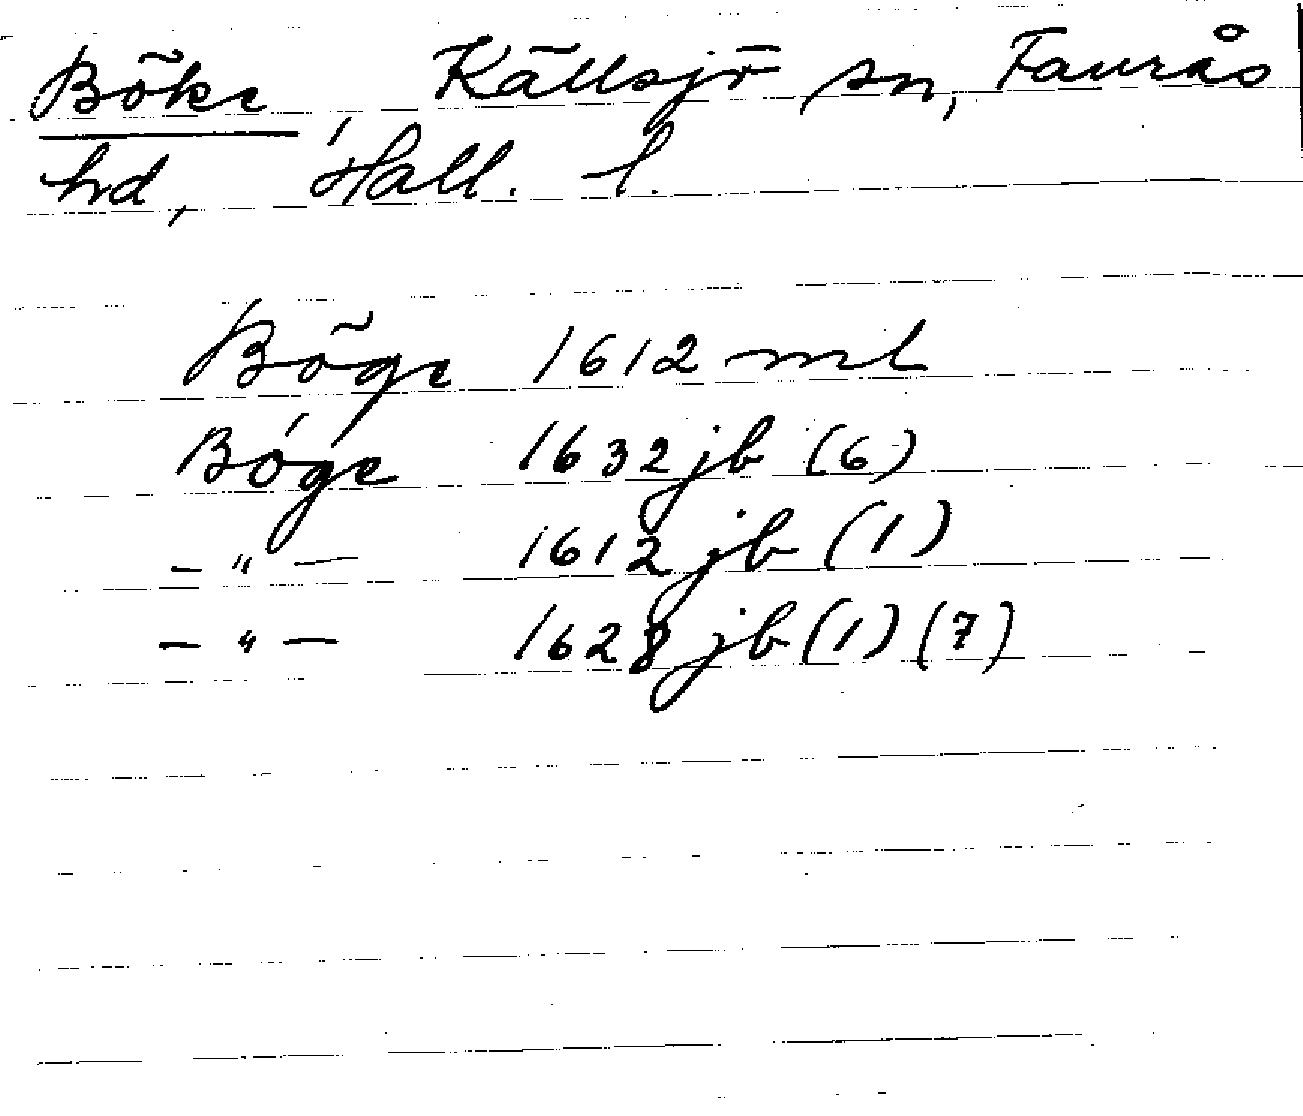 Böke, Källsjö sn, Faurås
hd, Hall. l.
Böge 1612 ml
Bóge 1632 jb (6)
- " - 1612 jb (1)
- " - 1628 jb (1) (7)